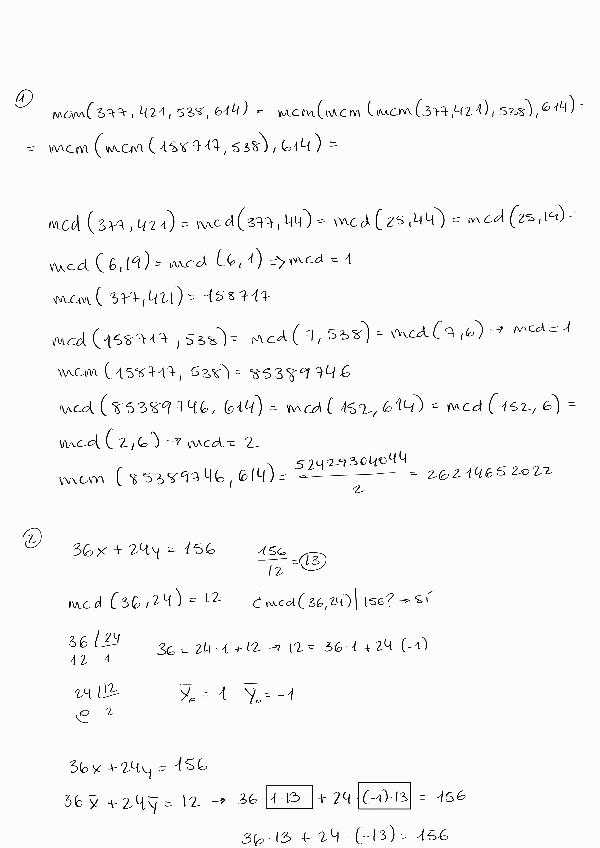 1
mcm(377,421,538,614) = mcm(mcm(mcm(377,421),538),614) =
= mcm(mcm(158717,538),614) =
mcd(377,421) = mcd(377,44) = mcd(25,44) = mcd(25,19) =
mcd(6,19) = mcd(6,1) ⇒ mcd = 1
mcm(377,421) = 158717
mcd(158717,538) = mcd(7,538) = mcd(7,6) → mcd = 1
mcm(158717,538) = 85389746
mcd(85389746,614) = mcd(152,614) = mcd(152,6) =
mcd(2,6) → mcd = 2
mcm(85389746,614) = 52429304044/2 = 26214652022
2
36x + 24y = 156 156/12 = 13
mcd(36,24) = 12 ¿mcd(36,24) | 156? → sí
36 | 24
12 1
36 = 24·1 + 12 → 12 = 36·1 + 24(-1)
24 | 12
0 2
x̄₀ = 1 ȳ₀ = -1
36x + 24y = 156
36x̄ + 24ȳ = 12 → 36 1·13 + 24·(-1)·13 = 156
36·13 + 24·(-13) = 156